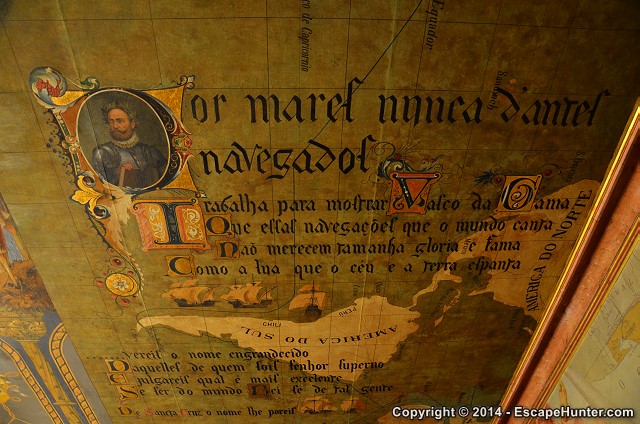 Por mares nunca d'antes
navegados
Trabalha para mostrar Vasco da Gama
Que essas navegações que o mundo canta
Não merecem tamanha gloria e fama
Como a tua que o céu e a terra espanta
AMERICA DO NORTE
AMERICA DO SUL
CHILI
PERÚ
Equador
o de Capricornio
Sandwich
vereis o nome engrandecido
Daquelles de quem sois senhor superno
E julgareis qual é mais excelente
Se ser do mundo Rei se de tal gente
De Sancta Cruz o nome lhe poreis
Copyright © 2014 - EscapeHunter.com